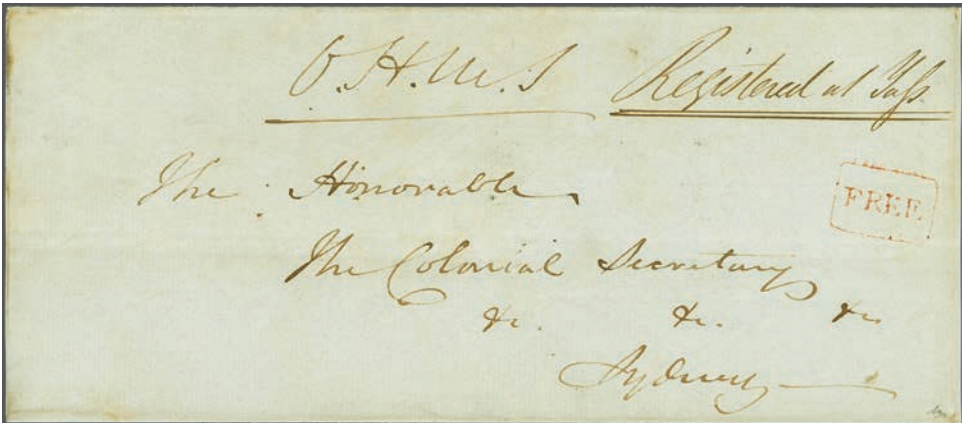 O.H.M.S Registered at Yass
The Honorable
FREE
The Colonial Secretary
&c. &c. &c
Sydney